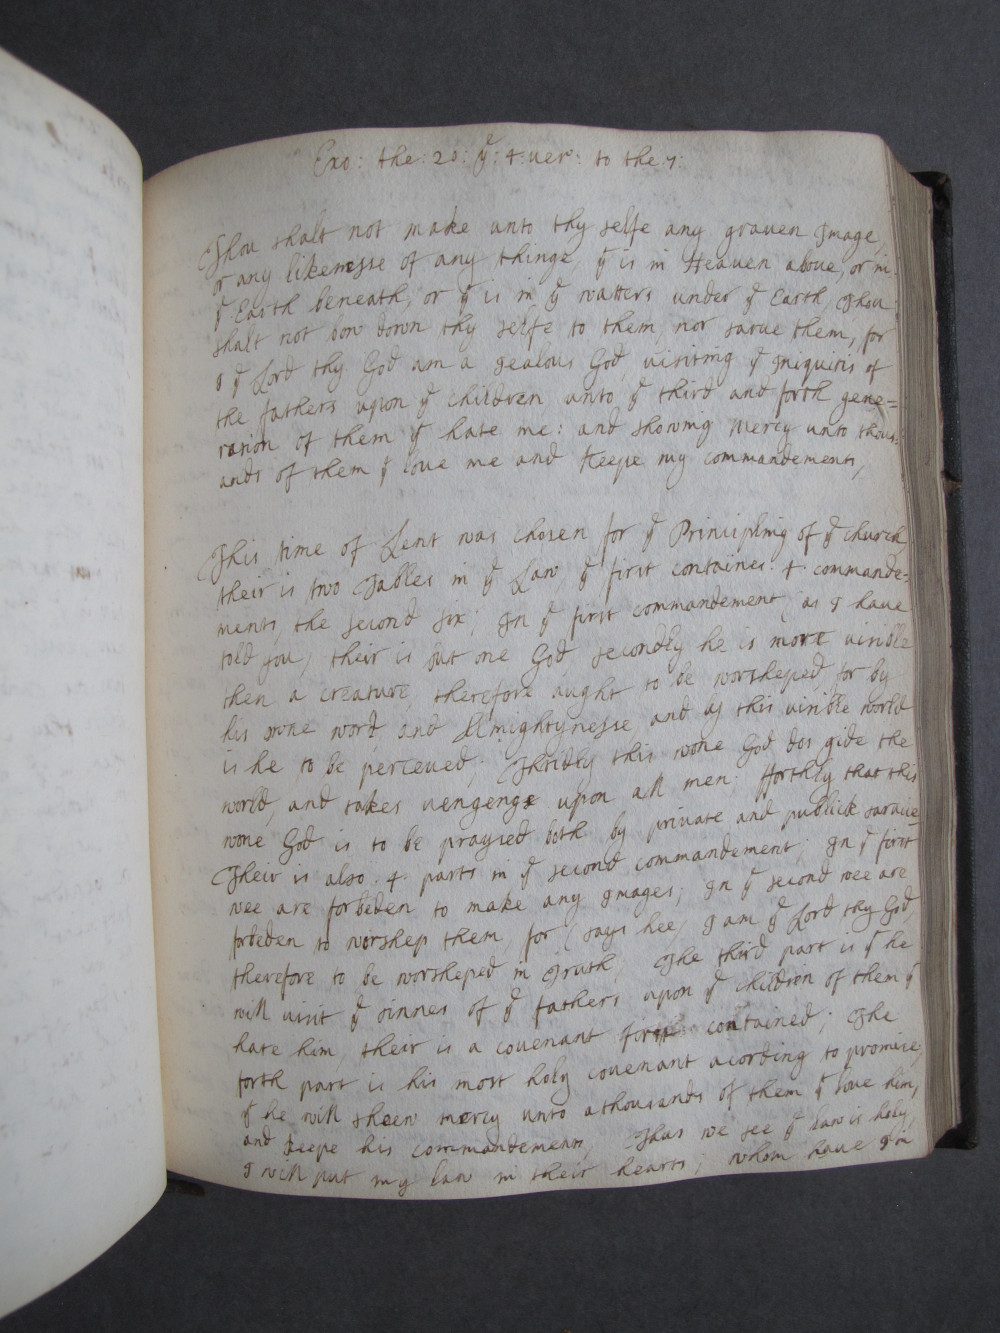 Exo: the: 20: yͤ: 4: uer: to the: 7:
Thou shalt not make unto thy selfe any grauen Image,
or any likenesse of any thinge, yͭ is in Heauen aboue, or in
yͤ Earth beneath, or yͭ is in yͤ watters under yͤ Earth, Thou
shalt not bow down thy selfe to them, nor sarue them, for
I yͤ Lord thy God am a Jealous God, uisiting yͤ Iniquitis of
the fathers upon yͤ children unto yͤ third and forth gene=
ration of them yͭ hate me: and showing Mercy unto thous:
ands of them yͭ loue me and Keepe my commandements,
This time of Lent was chosen for yͤ Principling of yͤ church,
their is two Tables in yͤ Law, yͤ first containes: 4: commande=
ments, the second six; In yͤ first commandement (as I haue
told you) their is but one God, secondly he is more uisible
then a creature, therefore aught to be worsheped for by
his wone word, and Allmightynesse, and by this uisible world
is he to be perceued; Thridly this wone God dos gide the
world, and takes uengenge upon all men; fforthly that this
wone God is to be prayied both by priuate and publick saruice
Their is also: 4: parts in yͤ second commandement; In yͤ first
wee are forbeden to make any Images; In yͤ second wee are
forbeden to worshep them, for (says hee) I am yͤ Lord thy God,
therefore to be worsheped in Truth, The third part is yͭ he
will uisit yͤ sinnes of yͤ fathers upon yͤ children of them yͭ
hate him, their is a couenant contained; The
forth part is his most holy couenant acording to promise,
yͭ he will sheew mercy unto a thousands of them yͭ loue him,
and keepe his commandements, Thus we see yͤ Law is holy,
I will put my Law in their hearts; whom haue I in